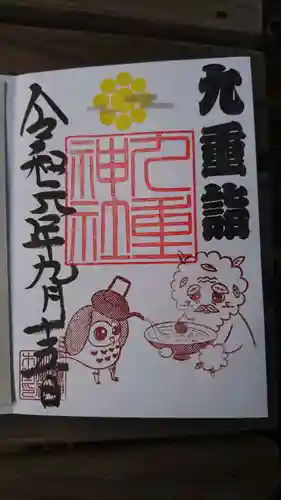 九重詣
九重
神社
令和元年九月十五日